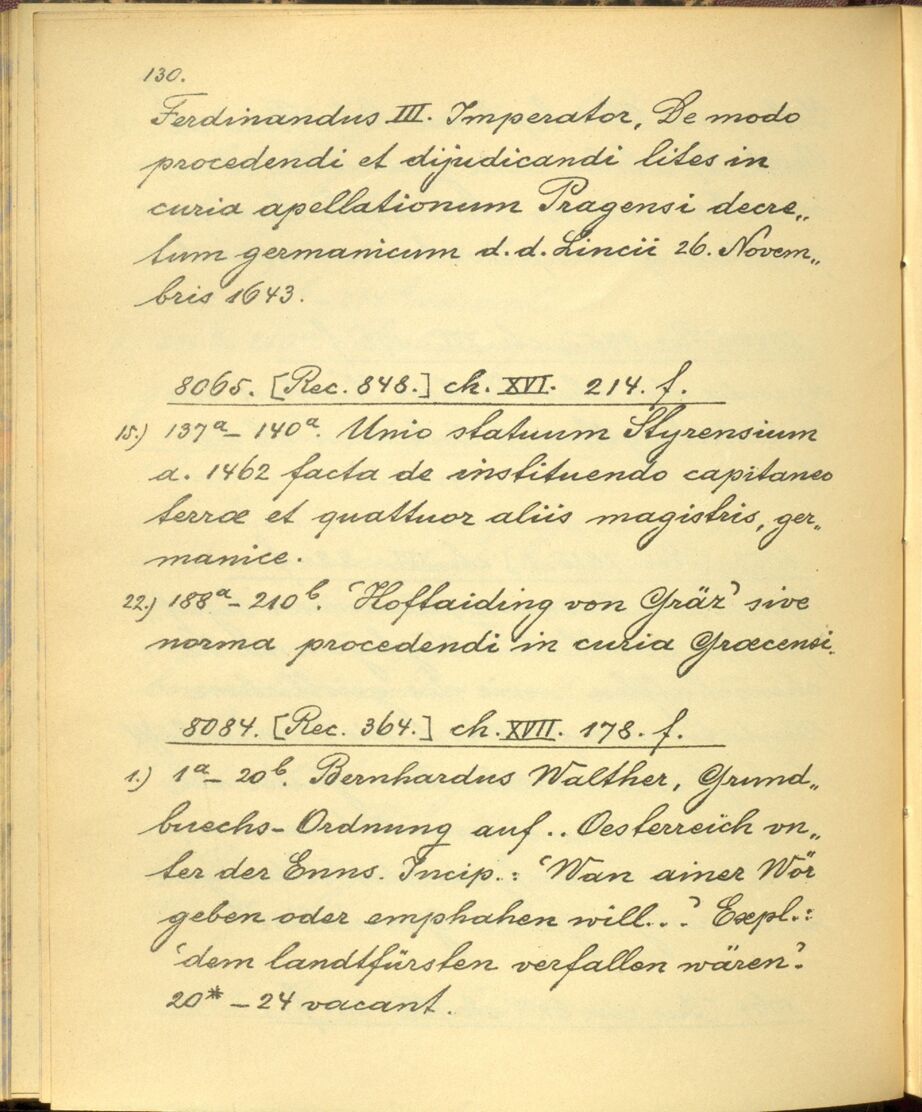 130.
Ferdinandus III. Imperator, De modo
procedendi et dijudicandi lites in
curia apellationum Pragensi decre„
tum germanicum d. d. Lincii 26. Novem„
bris 1643.
8065. [Rec. 848.] ch. XVI. 214. f.
15.) 137a – 140a. Unio statuum Styrensium
a. 1462 facta de instituendo capitaneo
terræ et quattuor aliis magistris, ger„
manice.
22.) 188a – 210b. ‘Hoftaiding von Gräz’ sive
norma procedendi in curia Græcensi.
8084. [Rec. 364.] ch. XVII. 178. f.
1.) 1a – 20b. Bernhardus Walther, Grund„
buechs-Ordnung auf .. Oesterreich vn„
ter der Enns. Incip.: ‘Wan ainer Wör
geben oder emphahen will..’ Expl.:
‘dem landtfürsten verfallen wären’.
20* – 24 vacant.